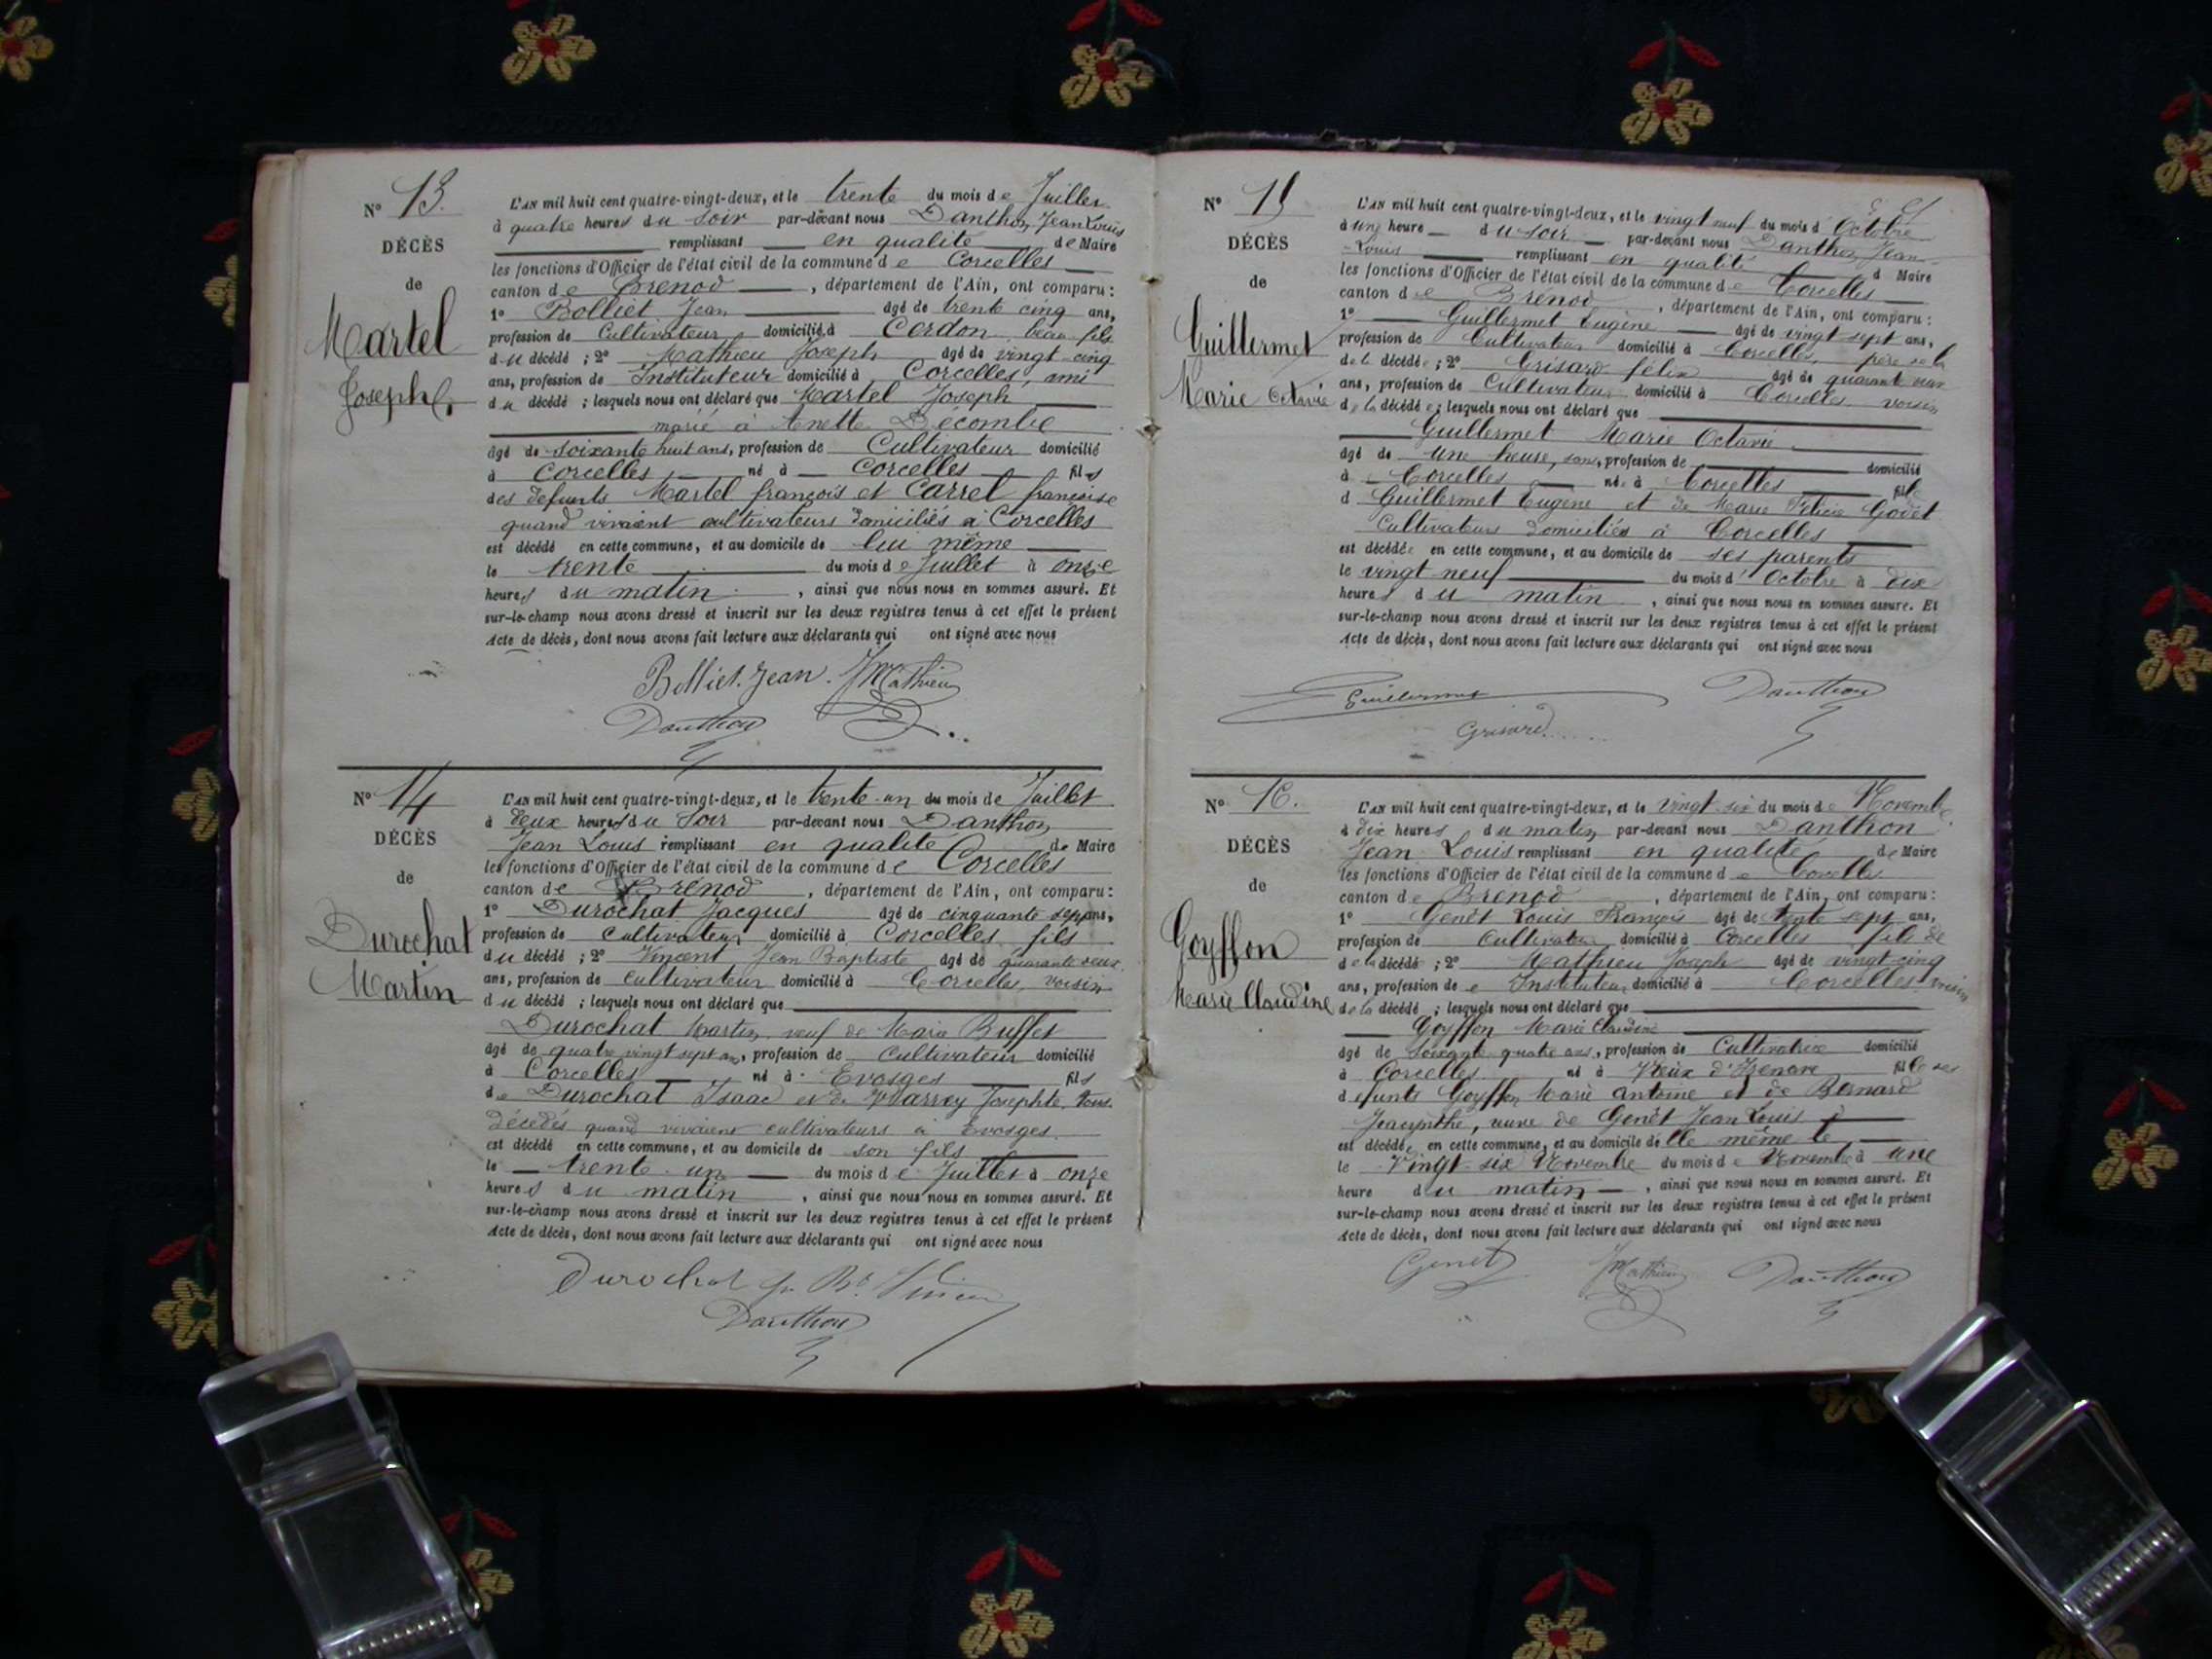 N° 13.
DÉCÈS
de
Martel
Joseph
L'AN mil huit cent quatre-vingt-deux, et le trente du mois de Juillet
à quatre heures du soir par-devant nous Danthon Jean Louis
remplissant en qualité de Maire
les fonctions d'Officier de l'état civil de la commune de Corcelles
canton de Brenod, département de l'Ain, ont comparu:
1° Bolliet Jean âgé de trente cinq ans,
profession de Cultivateur domicilié à Cerdon beau fils
du décédé; 2° Mathieu Joseph âgé de vingt cinq
ans, profession de Instituteur domicilié à Corcelles, ami
du décédé; lesquels nous ont déclaré que Martel Joseph
marié à Anette Décombe
âgé de soixante huit ans, profession de Cultivateur domicilié
à Corcelles né à Corcelles fils
des defunts Martel françois et Carrel françoise
quand vivaient cultivateurs domiciliés à Corcelles
est décédé en cette commune, et au domicile de lui même
le trente du mois de Juillet à onze
heures du matin, ainsi que nous nous en sommes assuré. Et
sur-le-champ nous avons dressé et inscrit sur les deux registres tenus à cet effet le présent
Acte de décès, dont nous avons fait lecture aux déclarants qui ont signé avec nous
Bolliet Jean. JMathieu
Danthon
N° 14
DÉCÈS
de
Durochat
Martin
L'AN mil huit cent quatre-vingt-deux, et le trente-un du mois de Juillet
à deux heures du soir par-devant nous Danthon
Jean Louis remplissant en qualité de Maire
les fonctions d'Officier de l'état civil de la commune de Corcelles
canton de Brénod, département de l'Ain, ont comparu:
1° Durochat Jacques âgé de cinquante sept ans,
profession de cultivateur domicilié à Corcelles fils
du décédé; 2° Vincent Jean Baptiste âgé de quarante deux
ans, profession de cultivateur domicilié à Corcelles, voisin
du décédé; lesquels nous ont déclaré que
Durochat Martin, veuf de Marie Buffet
âgé de quatre vingt sept ans, profession de Cultivateur domicilié
à Corcelles né à Evosges fils
de Durochat Isaac et de Varrey Josephte, tous
décédés quand vivaient cultivateurs à Evosges.
est décédé en cette commune, et au domicile de son fils
le trente-un du mois de Juillet à onze
heures du matin, ainsi que nous nous en sommes assuré. Et
sur-le-champ nous avons dressé et inscrit sur les deux registres tenus à cet effet le présent
Acte de décès, dont nous avons fait lecture aux déclarants qui ont signé avec nous
Durochat
Danthon
N° 15
DÉCÈS
de
Guillermet
Marie Octavie
L'AN mil huit cent quatre-vingt-deux, et le vingt neuf du mois d'Octobre
à une heure du soir par-devant nous Danthon Jean-
-Louis remplissant en qualité d Maire
les fonctions d'Officier de l'état civil de la commune de Corcelles
canton de Brenod, département de l'Ain, ont comparu:
1° Guillermet Eugène âgé de vingt sept ans,
profession de Cultivateur domicilié à Corcelles, père de la
de la décédée; 2° Grisard félix âgé de quarante deux
ans, profession de Cultivateur domicilié à Corcelles voisin
de la décédée; lesquels nous ont déclaré que
Guillermet Marie Octavie
âgé de une heure, sans, profession de domicilié
à Corcelles née à Corcelles fille
d Guillermet Eugène et de Marie Félicie Godet
Cultivateurs domiciliés à Corcelles
est décédée en cette commune, et au domicile de ses parents
le vingt neuf du mois d'Octobre à dix
heures du matin, ainsi que nous nous en sommes assuré. Et
sur-le-champ nous avons dressé et inscrit sur les deux registres tenus à cet effet le présent
Acte de décès, dont nous avons fait lecture aux déclarants qui ont signé avec nous
Guillermet Danthon
Grisard
N° 16.
DÉCÈS
de
Goyffon
Marie Claudine
L'AN mil huit cent quatre-vingt-deux, et le vingt-six du mois de Novembre
à dix heures du matin par-devant nous Danthon
Jean Louis remplissant en qualité de Maire
les fonctions d'Officier de l'état civil de la commune de Corcelles
canton de Brenod, département de l'Ain, ont comparu:
1° Genêt Louis François âgé de trente sept ans,
profession de Cultivateur domicilié à Corcelles fils de
de la décédé; 2° Mathieu Joseph âgé de vingt cinq
ans, profession de Instituteur domicilié à Corcelles voisin
de la décédé; lesquels nous ont déclaré que
Goyffon Marie Claudine
âgé de soixante quatre ans, profession de Cultivatrice domicilié
à Corcelles né à Vieux d'Izenave fille des
défunts Goyffon Marie Antoine et de Bernard
Jacynthe, veuve de Genêt Jean Louis
est décédée en cette commune, et au domicile de elle même le
le Vingt-six Novembre du mois de Novembre à une
heure du matin, ainsi que nous nous en sommes assuré. Et
sur-le-champ nous avons dressé et inscrit sur les deux registres tenus à cet effet le présent
Acte de décès, dont nous avons fait lecture aux déclarants qui ont signé avec nous
Genet JMathieu Danthon